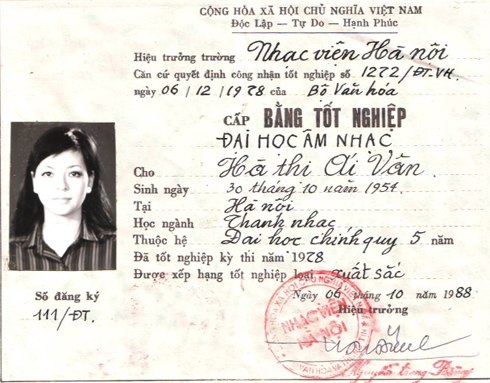 CỘNG HÒA XÃ HỘI CHỦ NGHĨA VIỆT NAM
Độc Lập – Tự Do – Hạnh Phúc
Hiệu trưởng trường Nhạc viện Hà nội
Căn cứ quyết định công nhận tốt nghiệp số 1272/ĐT.VH.
ngày 06/12/1978 của Bộ Văn hóa
CẤP BẰNG TỐT NGHIỆP
ĐẠI HỌC ÂM NHẠC
Cho Hà thị Ái Vân
Sinh ngày 30 tháng 10 năm 1954
Tại Hà nội
Học ngành Thanh nhạc
Thuộc hệ Đại học chính quy 5 năm
Đã tốt nghiệp kỳ thi năm 1978
Được xếp hạng tốt nghiệp loại xuất sắc
Ngày 06 tháng 10 năm 1988
Hiệu trưởng
Số đăng ký
111/ĐT.
NHẠC VIỆN
HÀ NỘI